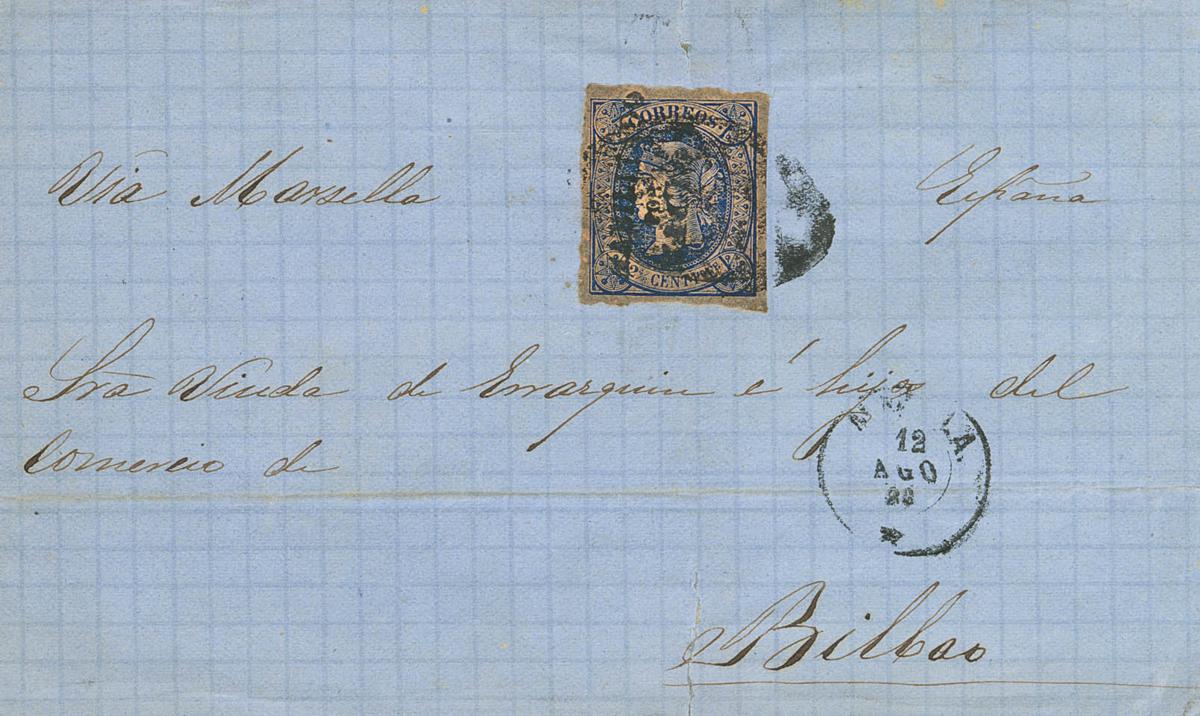 CORREOS
2 4/8 CENT
Via Marsella
España
Sra Viuda de Errarquin é hijos del
Comercio de
12
AGO
Bilbao